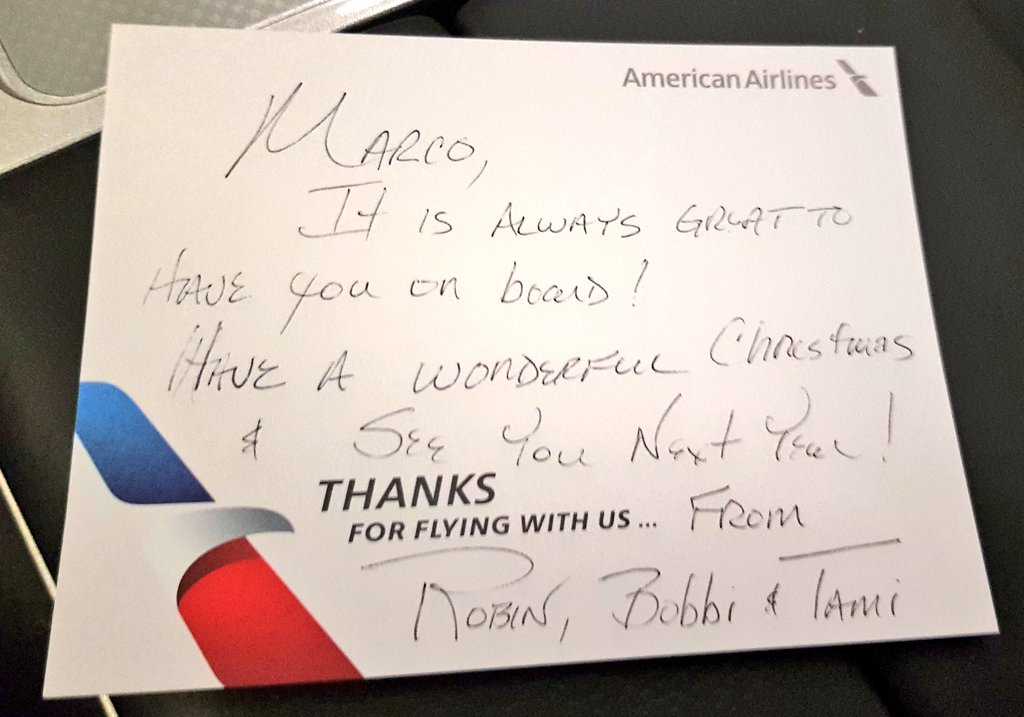 American Airlines
Marco,
It is always great to
have you on board!
Have a wonderful Christmas
& See You Next Year!
THANKS
FOR FLYING WITH US ... From
Robin, Bobbi & Tami